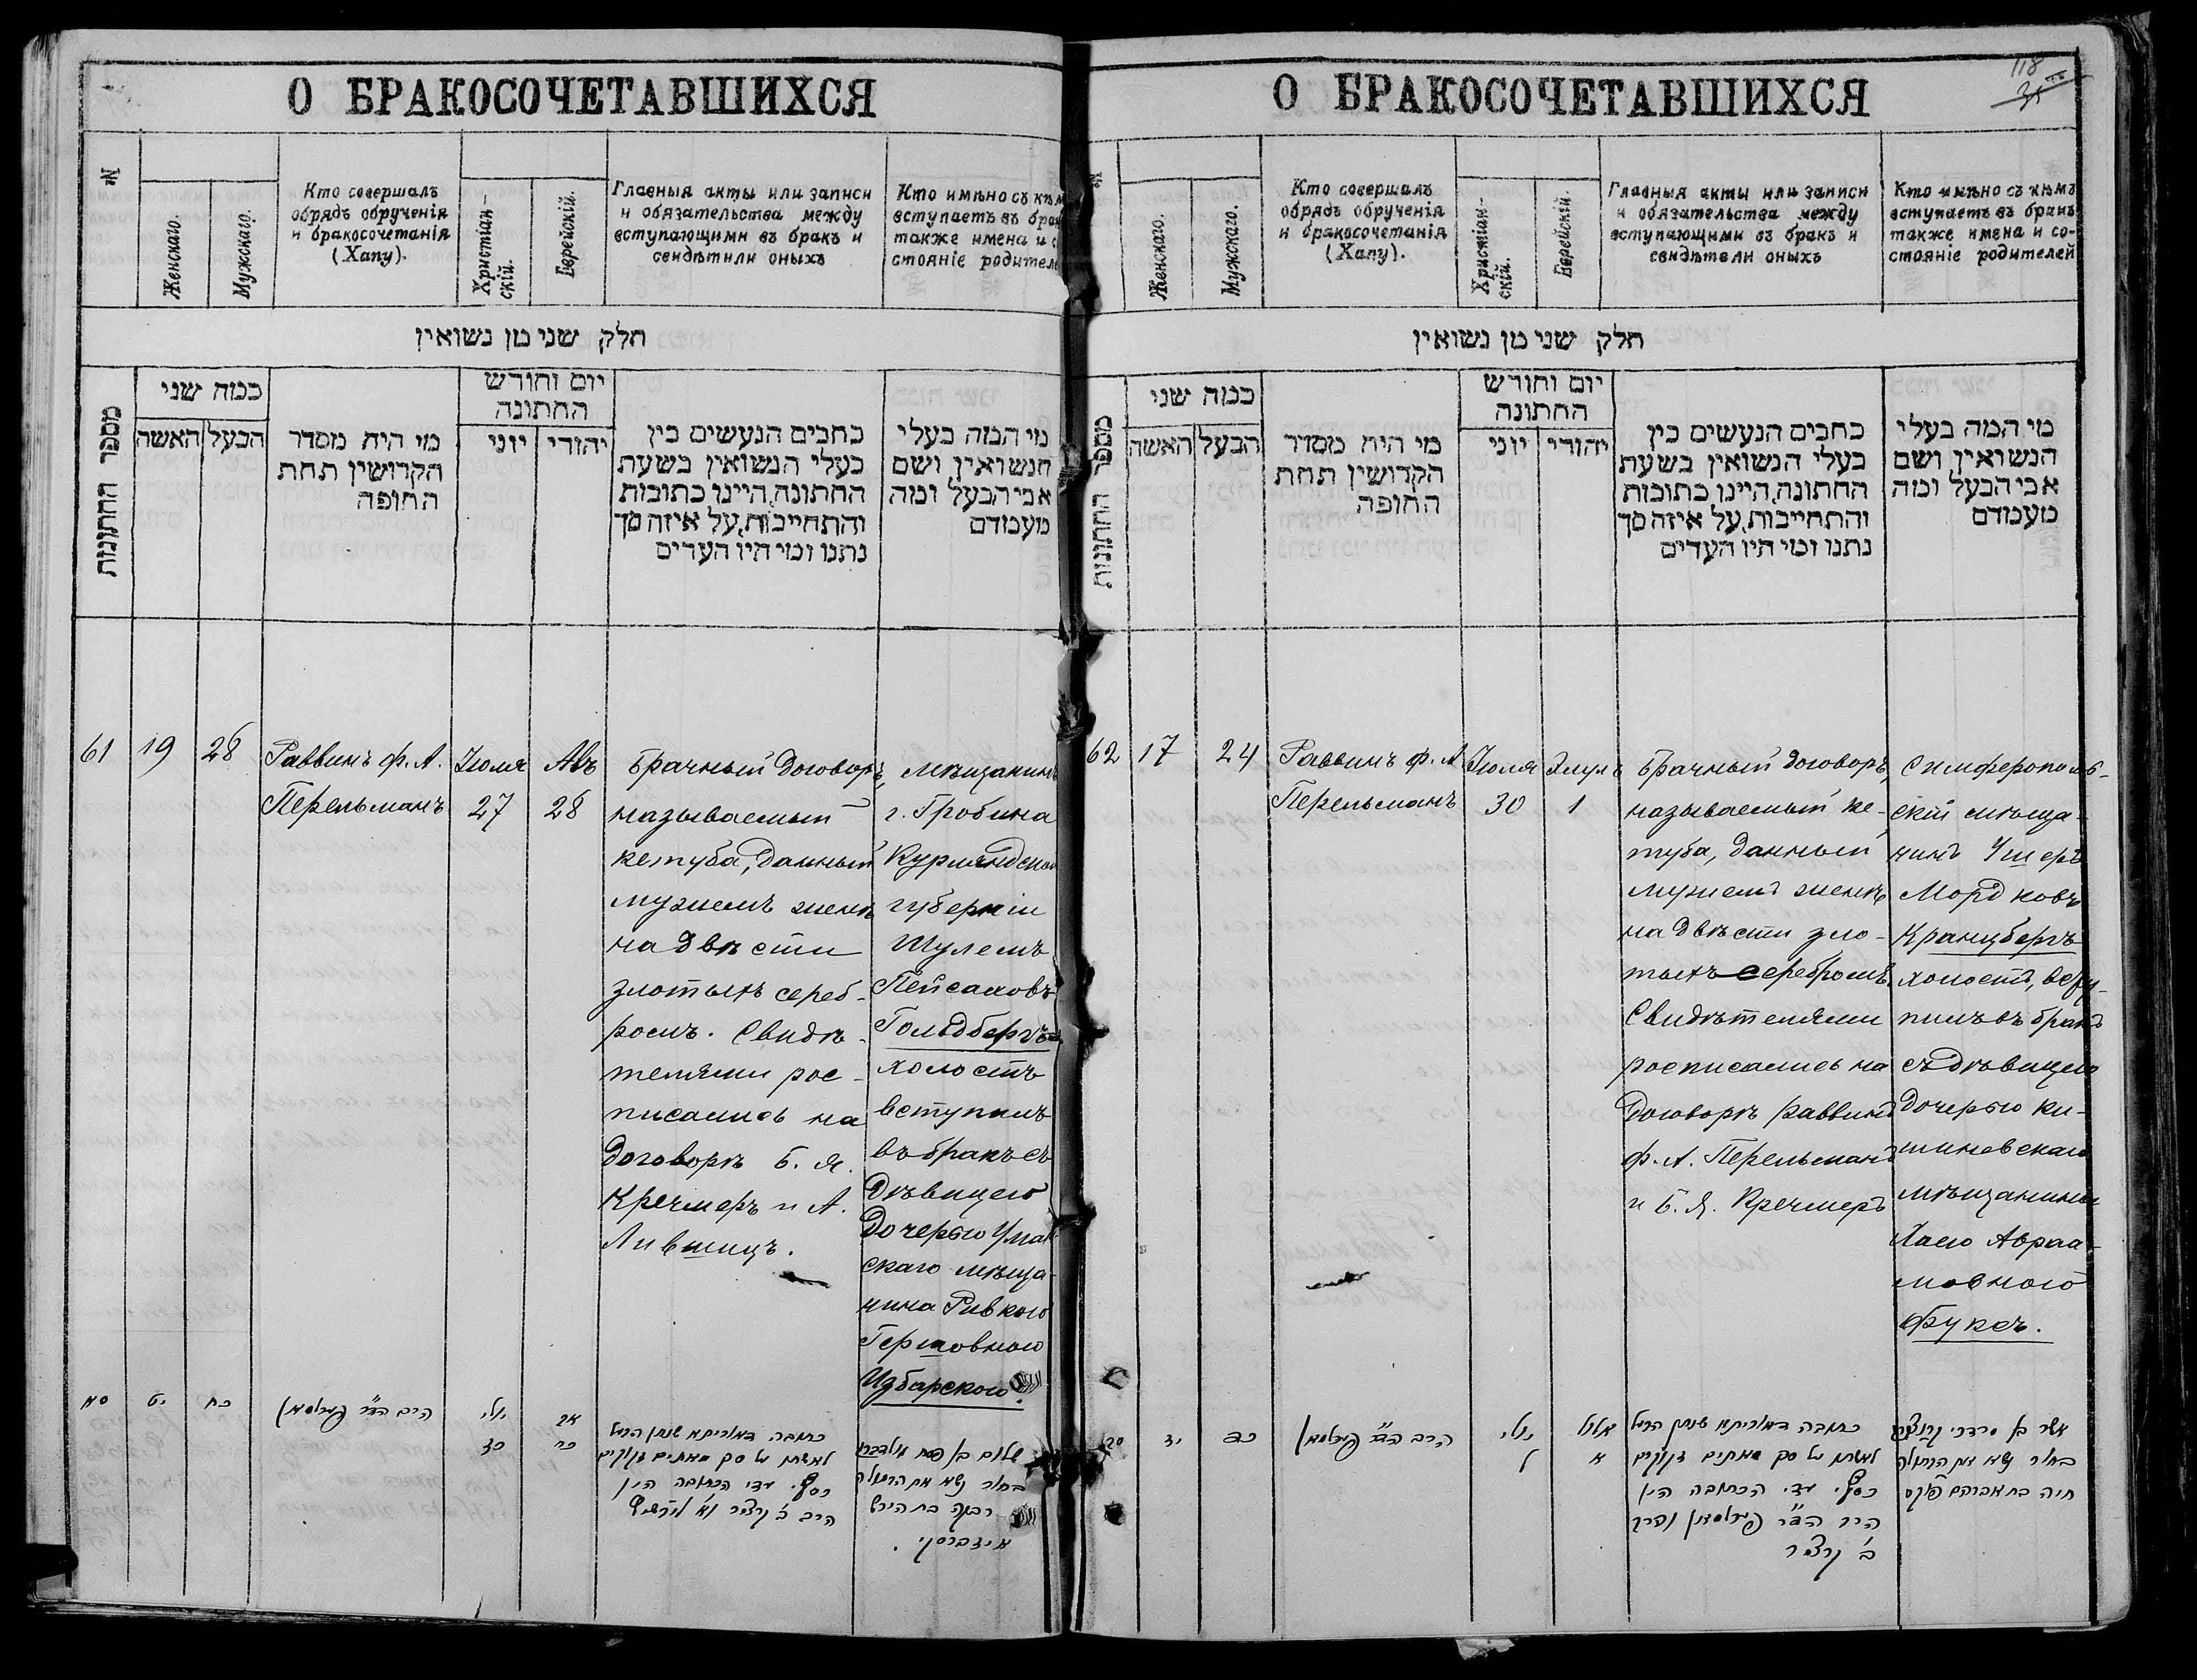 О БРАКОСОЧЕТАВШИХСЯ
№
Женскаго.
Мужскаго.
Кто совершалъ
обрядъ обрученія
и бракосочетанія
(Хапу).
Христіан-
скій.
Еврейскій.
Главныя акты или записи
и обязательства между
вступающими въ бракъ и
свидѣтили оныхъ
Кто имѣно съ кѣм
вступаетъ въ бра
также имена и с
стояніе родител
חלק שני מן נשואין
מספר החתונות
כמה שני
האשה
הבעל
מי היה מסדר
הקדושין תחת
החופה
יום וחודש
החתונה
יוני
יהודי
כתבים הנעשים בין
בעלי הנשואין בשעת
החתונה, היינו כתובות
והתחייבות, על איזה סך
נתנו ומי היו העדים
מי המה בעלי
הנשואין ושם
אבי הבעל ומה
מעמדם
61
19
28
Раввинъ Ф. А.
Перельманъ
Іюля
27
Авъ
28
Брачный договоръ,
называемый
кетуба, данный
мужемъ женѣ
на двѣсти
злотыхъ сереб-
ромъ. Свидѣ-
телями рос-
писались на
договорѣ Б. Я.
Кречмеръ и А.
Лившицъ.
мѣщанинъ
г. Гробина
Курляндской
губерніи
Шулемъ
Пейсаховъ
Гольдбергъ
холостъ
вступилъ
въ бракъ съ
дѣвицею
дочерью Уман
скаго мѣща-
нина Ривкою
Гершовною
Избарского.
סא
יט
כח
הרב הר״ פערלמאן
יולי
כז
אב
כח
כתובה דאורייתא שנתן הבעל
לאשתו על סך מאתים זקוקים
כסף. עדי הכתובה היו
הרב ב׳ קרצמר וא׳ ליבשיץ
שלום בן פסח גאלדבערג
בחור נשא את הבתולה
רבקה בת הירש
איזברסקי.
О БРАКОСОЧЕТАВШИХСЯ
118
35
№
Женскаго.
Мужскаго.
Кто совершалъ
обрядъ обрученія
и бракосочетанія
(Хапу).
Христіан-
скій.
Еврейскій.
Главныя акты или записи
и обязательства между
вступающими въ бракъ и
свидѣтели оныхъ
Кто имѣно съ кѣмъ
вступаетъ въ бракъ
также имена и со-
стояніе родителей
חלק שני מן נשואין
מספר החתונות
כמה שני
האשה
הבעל
מי היה מסדר
הקדושין תחת
החופה
יום וחודש
החתונה
יוני
יהודי
כתבים הנעשים בין
בעלי הנשואין בשעת
החתונה, היינו כתובות
והתחייבות, על איזה סך
נתנו ומי היו העדים
מי המה בעלי
הנשואין, ושם
אבי הבעל ומה
מעמדם
62
17
24
Раввинъ Ф. А
Перельманъ
Іюля
30
Элулъ
1
Брачный договоръ,
называемый ке-
туба, данный
мужемъ женѣ
на двѣсти зло-
тыхъ серебромъ.
Свидѣтелями
росписались на
договорѣ раввинъ
Ф. А. Перельманъ
и Б. Я. Кречмеръ
Симферополь-
скій мѣща-
нинъ Ушеръ
Мордковъ
Кранцбергъ
холостъ, всту-
пилъ въ бракъ
съ дѣвицею
дочерью Ки-
шиневскаго
мѣщанина
Хаею Авраа-
мовною
Фуксъ.
סב
יז
כד
הרב הר״ פערלמאן
יולי
ל
אלול
א
כתובה דאורייתא שנתן הבעל
לאשתו על סך מאתים זקוקים
כסף. עדי הכתובה היו
הרב הר״ פערלמאן והרב
ב׳ קרצמר
אשר בן מרדכי קרנצברג
בחור נשא את הבתולה
חיה בת אברהם פוקס